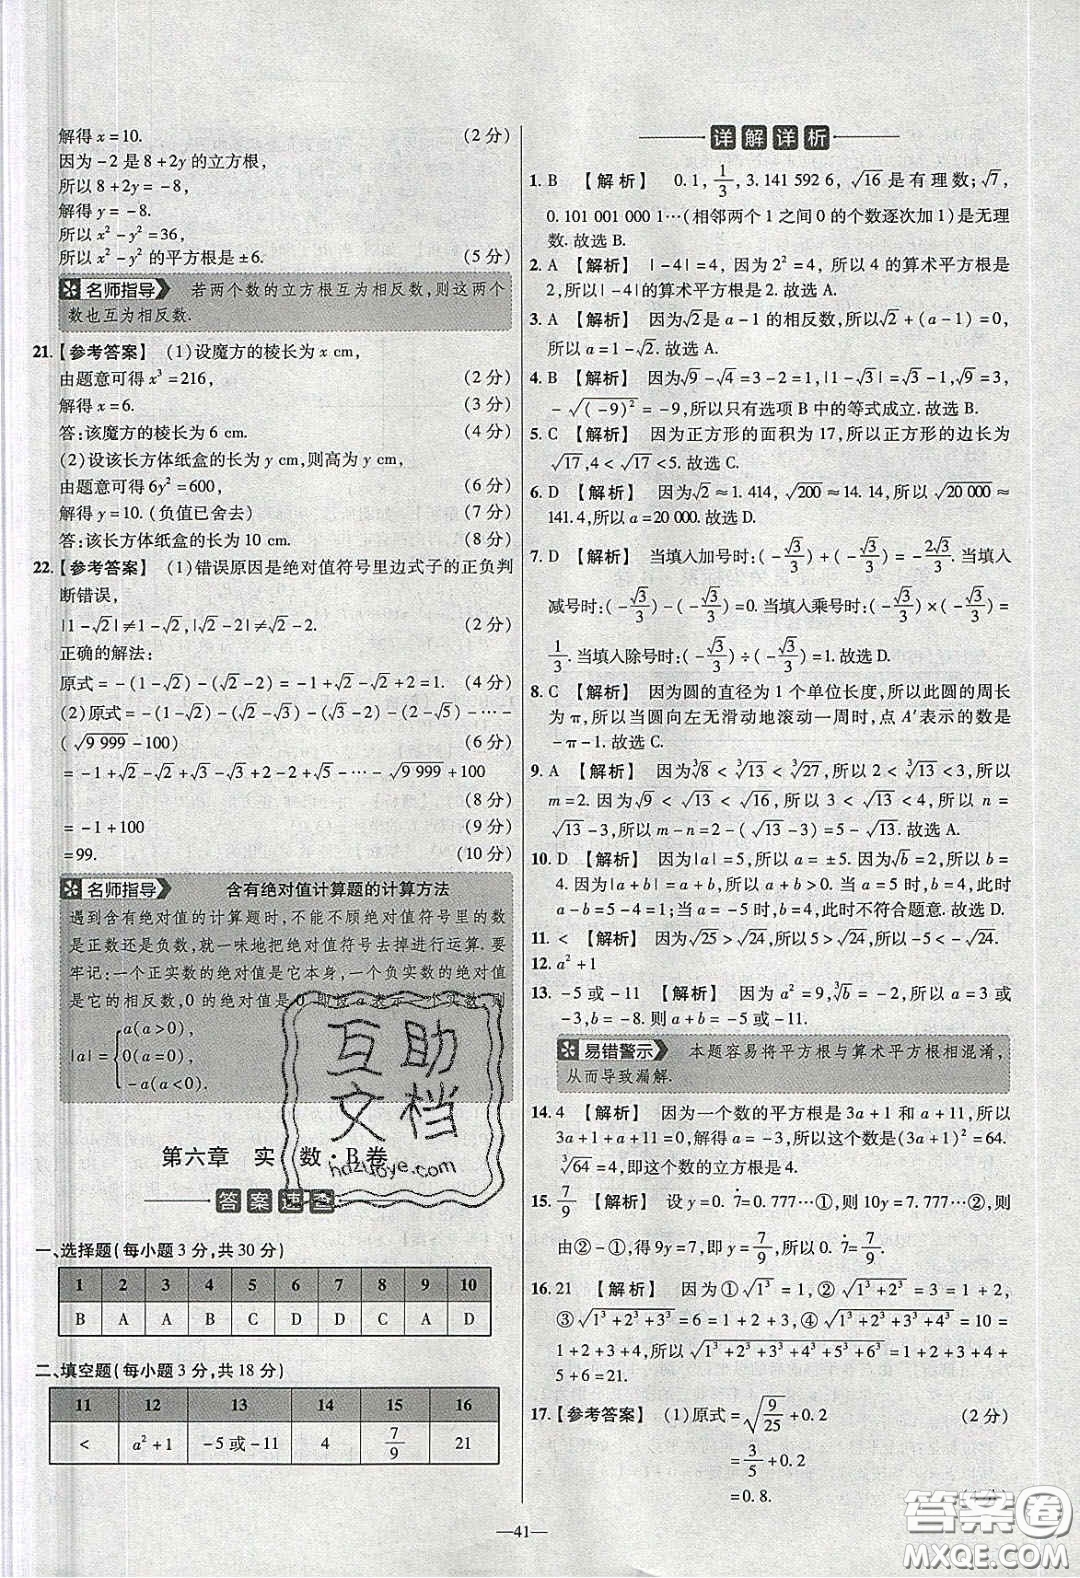 解得 x=10. (2 分)
因为 -2 是 8+2y 的立方根,
所以 8+2y = -8,
解得 y = -8.
所以 x²-y²=36,
所以 x²-y² 的平方根是 ±6. (5 分)
名师指导 若两个数的立方根互为相反数,则这两个
数也互为相反数.
21.【参考答案】 (1)设魔方的棱长为 x cm,
由题意可得 x³=216, (2 分)
解得 x=6. (3 分)
答:该魔方的棱长为 6 cm. (4 分)
(2)设该长方体纸盒的长为 y cm,则高为 y cm,
由题意可得 6y²=600, (6 分)
解得 y=10. (负值已舍去) (7 分)
答:该长方体纸盒的长为 10 cm. (8 分)
22.【参考答案】 (1)错误原因是绝对值符号里边式子的正负判
断错误,
|1-√2|≠1-√2,|√2-2|≠√2-2. (2 分)
正确的解法:
原式=-(1-√2)-(√2-2)=-1+√2-√2+2=1. (4 分)
(2)原式=-(1-√2)-(√2-√3)-(√3-2)-(2-√5)-…-
(√9 999-100) (6 分)
=-1+√2-√2+√3-√3+2-2+√5-…-√9 999+100
(8 分)
=-1+100 (9 分)
=99. (10 分)
名师指导 含有绝对值计算题的计算方法
遇到含有绝对值的计算题时,不能不顾绝对值符号里的数
是正数还是负数,就一味地把绝对值符号去掉进行运算. 要
牢记:一个正实数的绝对值是它本身,一个负实数的绝对值
是它的相反数,0 的绝对值是 0.即设 a 表示一个实数,则
|a|={a(a>0),
0(a=0),
-a(a<0).
第六章 实 数·B卷
答案速查
一、选择题(每小题 3 分,共 30 分)
1 2 3 4 5 6 7 8 9 10
B A A B C D D C A D
二、填空题(每小题 3 分,共 18 分)
11 12 13 14 15 16
< a²+1 -5 或 -11 4 7/9 21
详解详析
1. B 【解析】 0.1, 1/3, 3.141 592 6, √16 是有理数;√7,
0.101 001 000 1…(相邻两个 1 之间 0 的个数逐次加 1)是无理
数. 故选 B.
2. A 【解析】 |-4|=4, 因为 2²=4, 所以 4 的算术平方根是
2,所以|-4|的算术平方根是 2. 故选 A.
3. A 【解析】 因为√2是 a-1 的相反数,所以√2+(a-1)=0,
所以 a=1-√2. 故选 A.
4. B 【解析】 因为√9-√4=3-2=1,|1-√3|=√3-1,√9=3,
-√(-9)²=-9,所以只有选项 B 中的等式成立. 故选 B.
5. C 【解析】 因为正方形的面积为 17,所以正方形的边长为
√17,4<√17<5. 故选 C.
6. D 【解析】 因为√2≈1.414, √200≈14.14, 所以√20 000≈
141.4,所以 a=20 000. 故选 D.
7. D 【解析】 当填入加号时:(-√3/3)+(-√3/3)=-2√3/3. 当填入
减号时:(-√3/3)-(-√3/3)=0. 当填入乘号时:(-√3/3)×(-√3/3)=
1/3. 当填入除号时:(-√3/3)÷(-√3/3)=1. 故选 D.
8. C 【解析】 因为圆的直径为 1 个单位长度,所以此圆的周长
为 π,所以当圆向左无滑动地滚动一周时,点 A′表示的数是
-π-1. 故选 C.
9. A 【解析】 因为∛8<∛13<∛27,所以 2<∛13<3,所以
m=2. 因为√9<√13<√16,所以 3<√13<4,所以 n=
√13-3,所以 m-n=2-(√13-3)=5-√13. 故选 A.
10. D 【解析】 因为|a|=5,所以 a=±5. 因为√b=2,所以 b=
4. 因为|a+b|=a+b,所以 a+b≥0,所以 a=5,b=4,此时
a-b=5-4=1;当 a=-5,b=4,此时不符合题意. 故选 D.
11. < 【解析】 因为√25>√24,所以 5>√24,所以-5<-√24.
12. a²+1
13. -5 或 -11 【解析】 因为 a²=9,∛b=-2,所以 a=3 或
-3,b=-8. 则 a+b=-5 或 -11.
易错警示 本题容易将平方根与算术平方根相混淆,
从而导致漏解.
14. 4 【解析】 因为一个数的平方根是 3a+1 和 a+11,所以
3a+1+a+11=0,解得 a=-3,所以这个数是(3a+1)²=64.
∛64=4,即这个数的立方根是 4.
15. 7/9 【解析】 设 y=0.7̇=0.777…①,则 10y=7.777…②,则
由②-①,得 9y=7,即 y=7/9,所以 0.7̇=7/9.
16. 21 【解析】 因为①√1³=1,②√1³+2³=1+2,
③√1³+2³+3³=6=1+2+3,④√1³+2³+3³+4³=10=
1+2+3+4,所以√1³+2³+3³+4³+5³+6³=1+2+3+4+
5+6=21.
17.【参考答案】 (1)原式=√9/25+0.2 (2 分)
=3/5+0.2
=0.8.
—41—
互助
文档
hdzuoye.com
答案圈
MXQE.COM